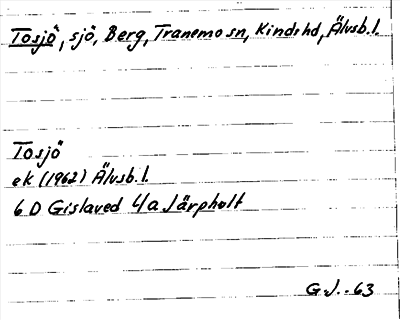 Tosjö, sjö, Berg, Tranemo sn, Kinds hd, Älvsb. l.
Tosjö
ek (1962) Älvsb. l.
6 D Gislaved 4a Järpholt
G.J. -63